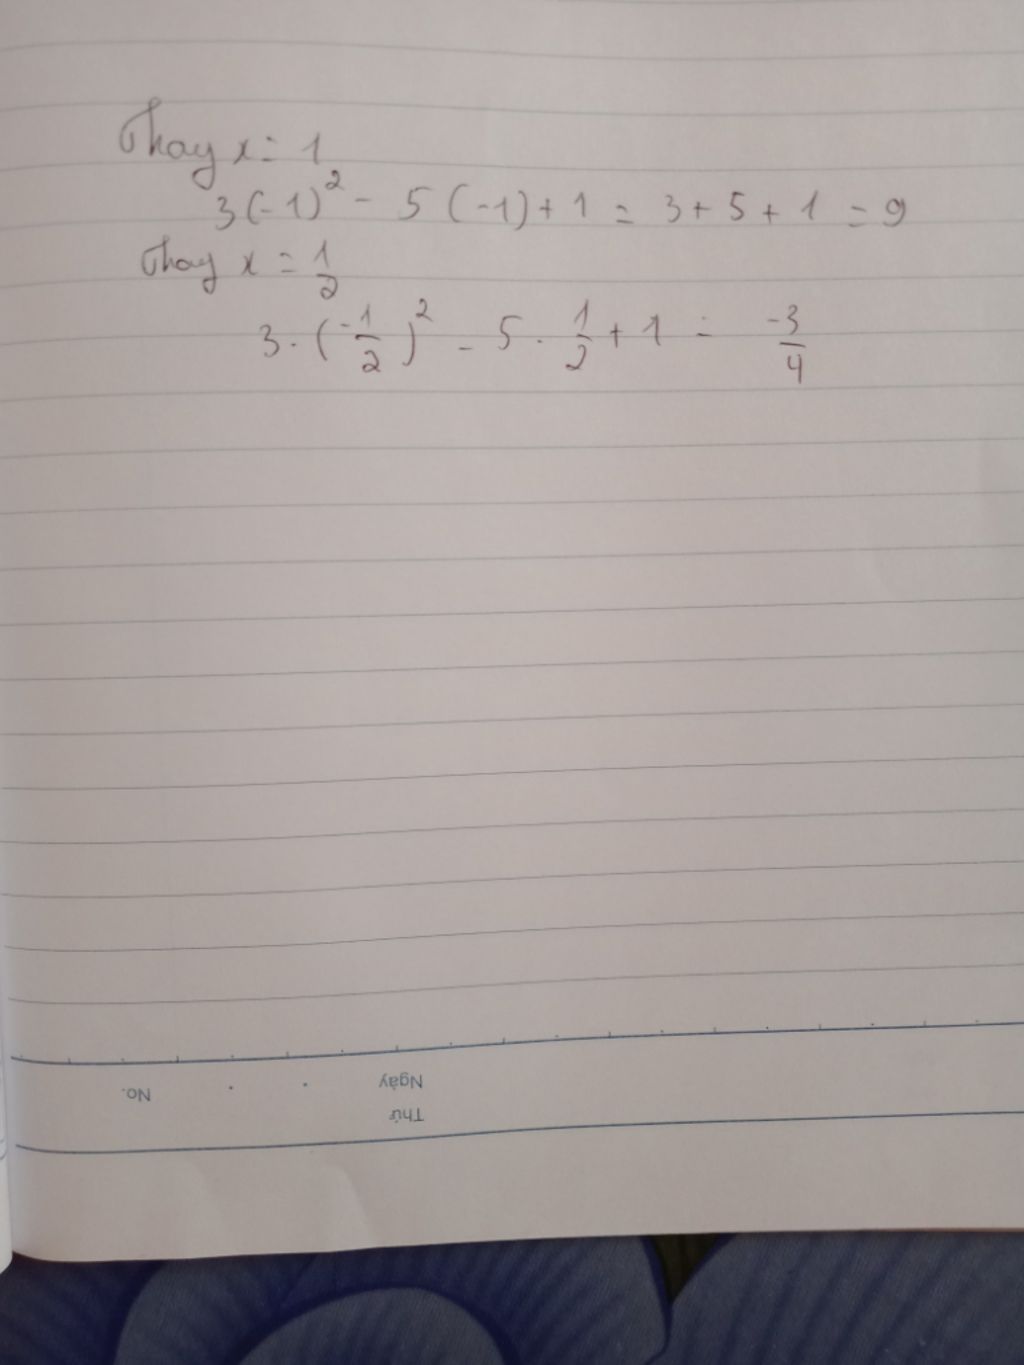 Thay x = 1
3(-1)² - 5(-1) + 1 = 3 + 5 + 1 = 9
Thay x = 1/2
3 · (-1/2)² - 5 · 1/2 + 1 = -3/4
No.
Ngày
Thứ